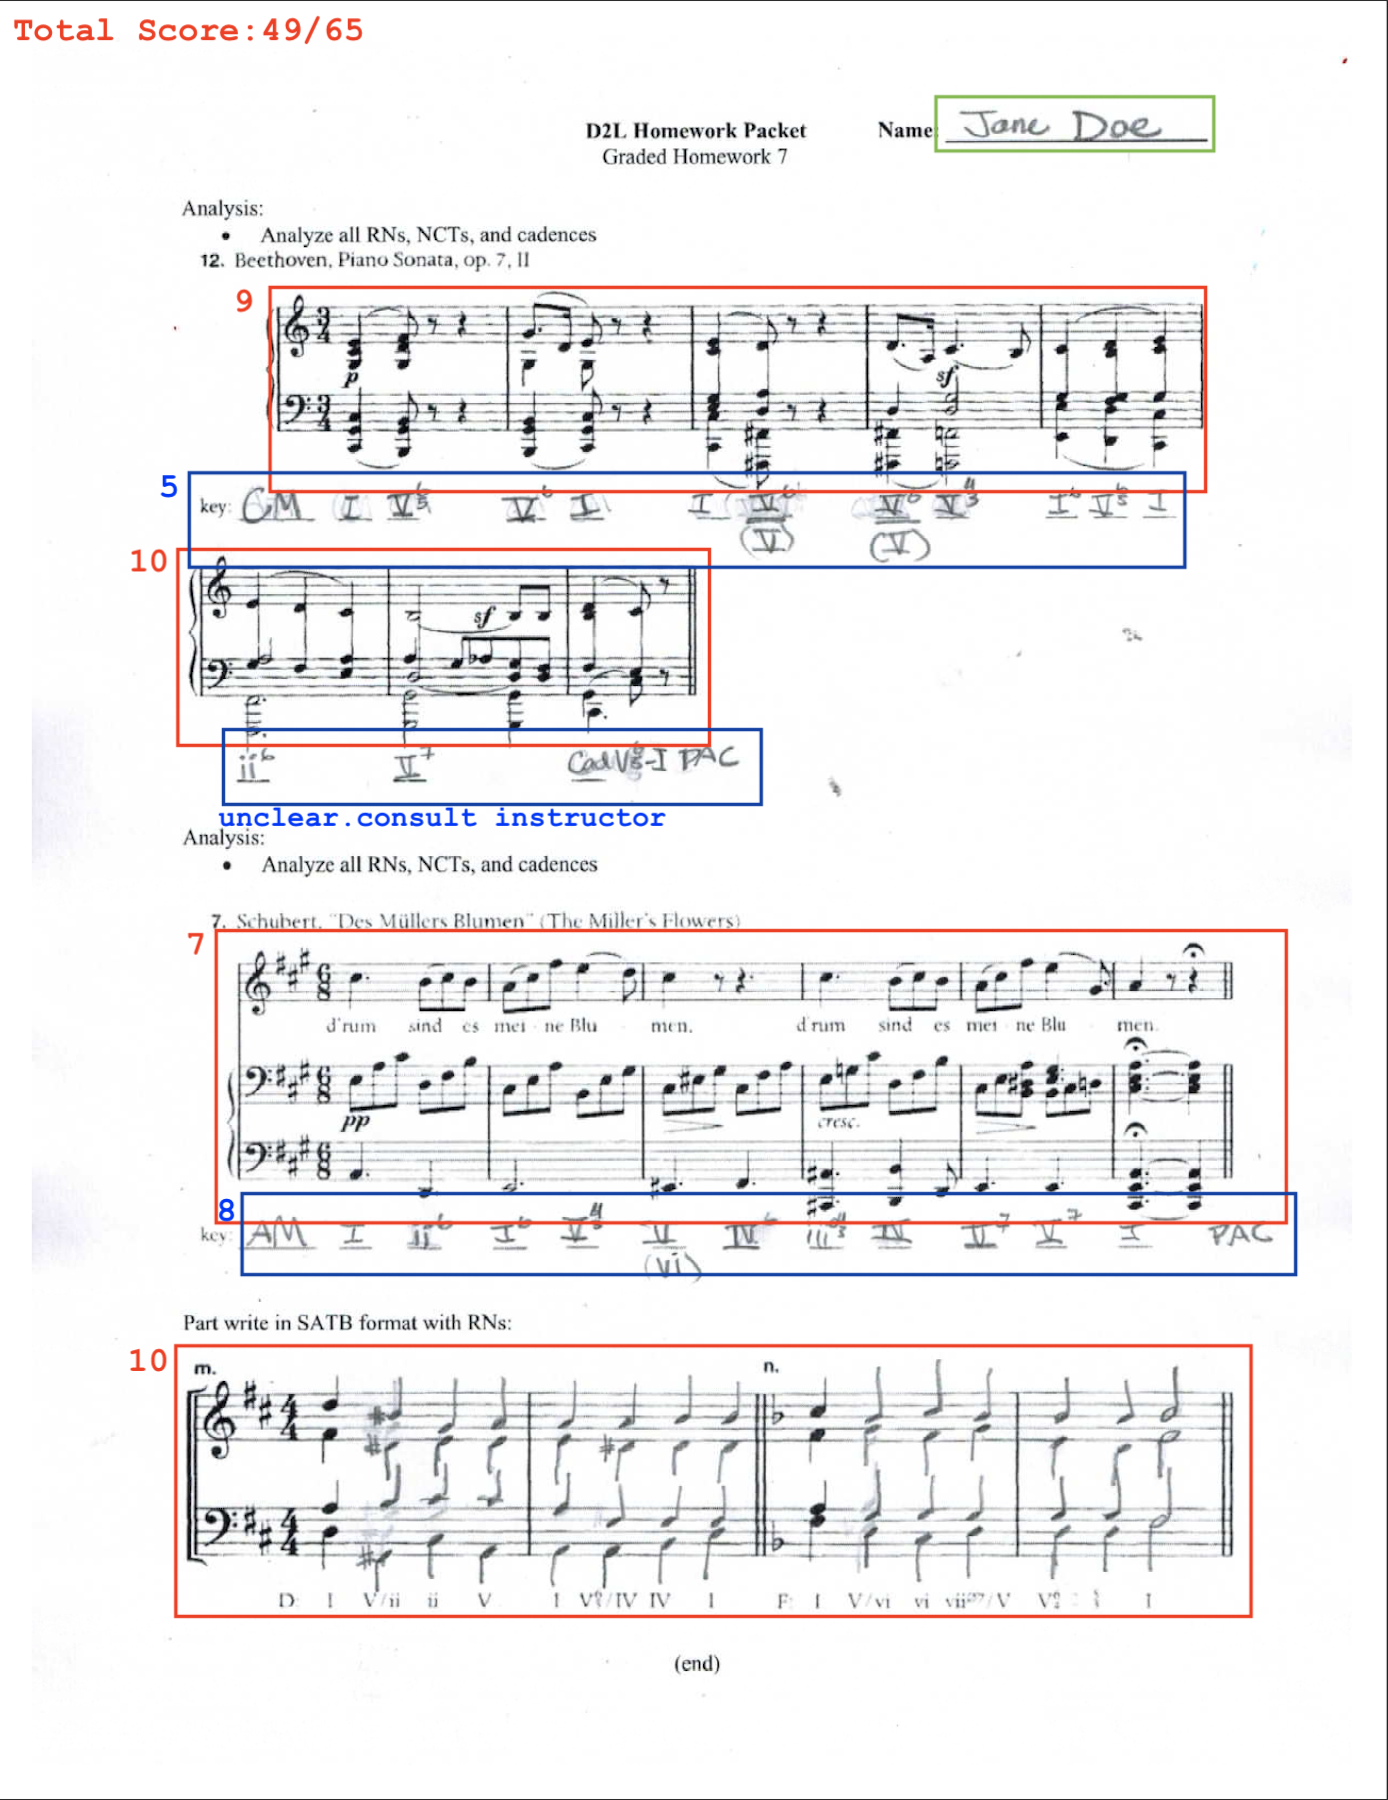 Total Score:49/65
D2L Homework Packet
Name: Jane Doe
Graded Homework 7
Analysis:
• Analyze all RNs, NCTs, and cadences
12. Beethoven, Piano Sonata, op. 7, II
9
p
sf
5
key: CM I V6/5 V6 I I V6/(V) V6/(V) V4/3 I6 V6/5 I
10
sf
ii6 V7 Cad V6/5-I PAC
unclear.consult instructor
Analysis:
• Analyze all RNs, NCTs, and cadences
7. Schubert, "Des Müllers Blumen" (The Miller's Flowers)
7
d'rum sind es mei - ne Blu - men, d'rum sind es mei - ne Blu - men.
pp
cresc.
8
key: AM I ii6 I6 V4/3 V/(vi) IV6 iii4/3 IV V7 V7 I PAC
Part write in SATB format with RNs:
10
m.
n.
D: I V/ii ii V I /IV IV I F: I V/vi vi viiø7/V I
(end)